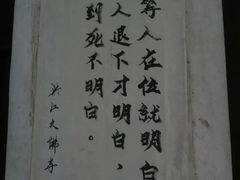 等人在位就明白
人退下才明白，
到死不明白。
江大佛寺